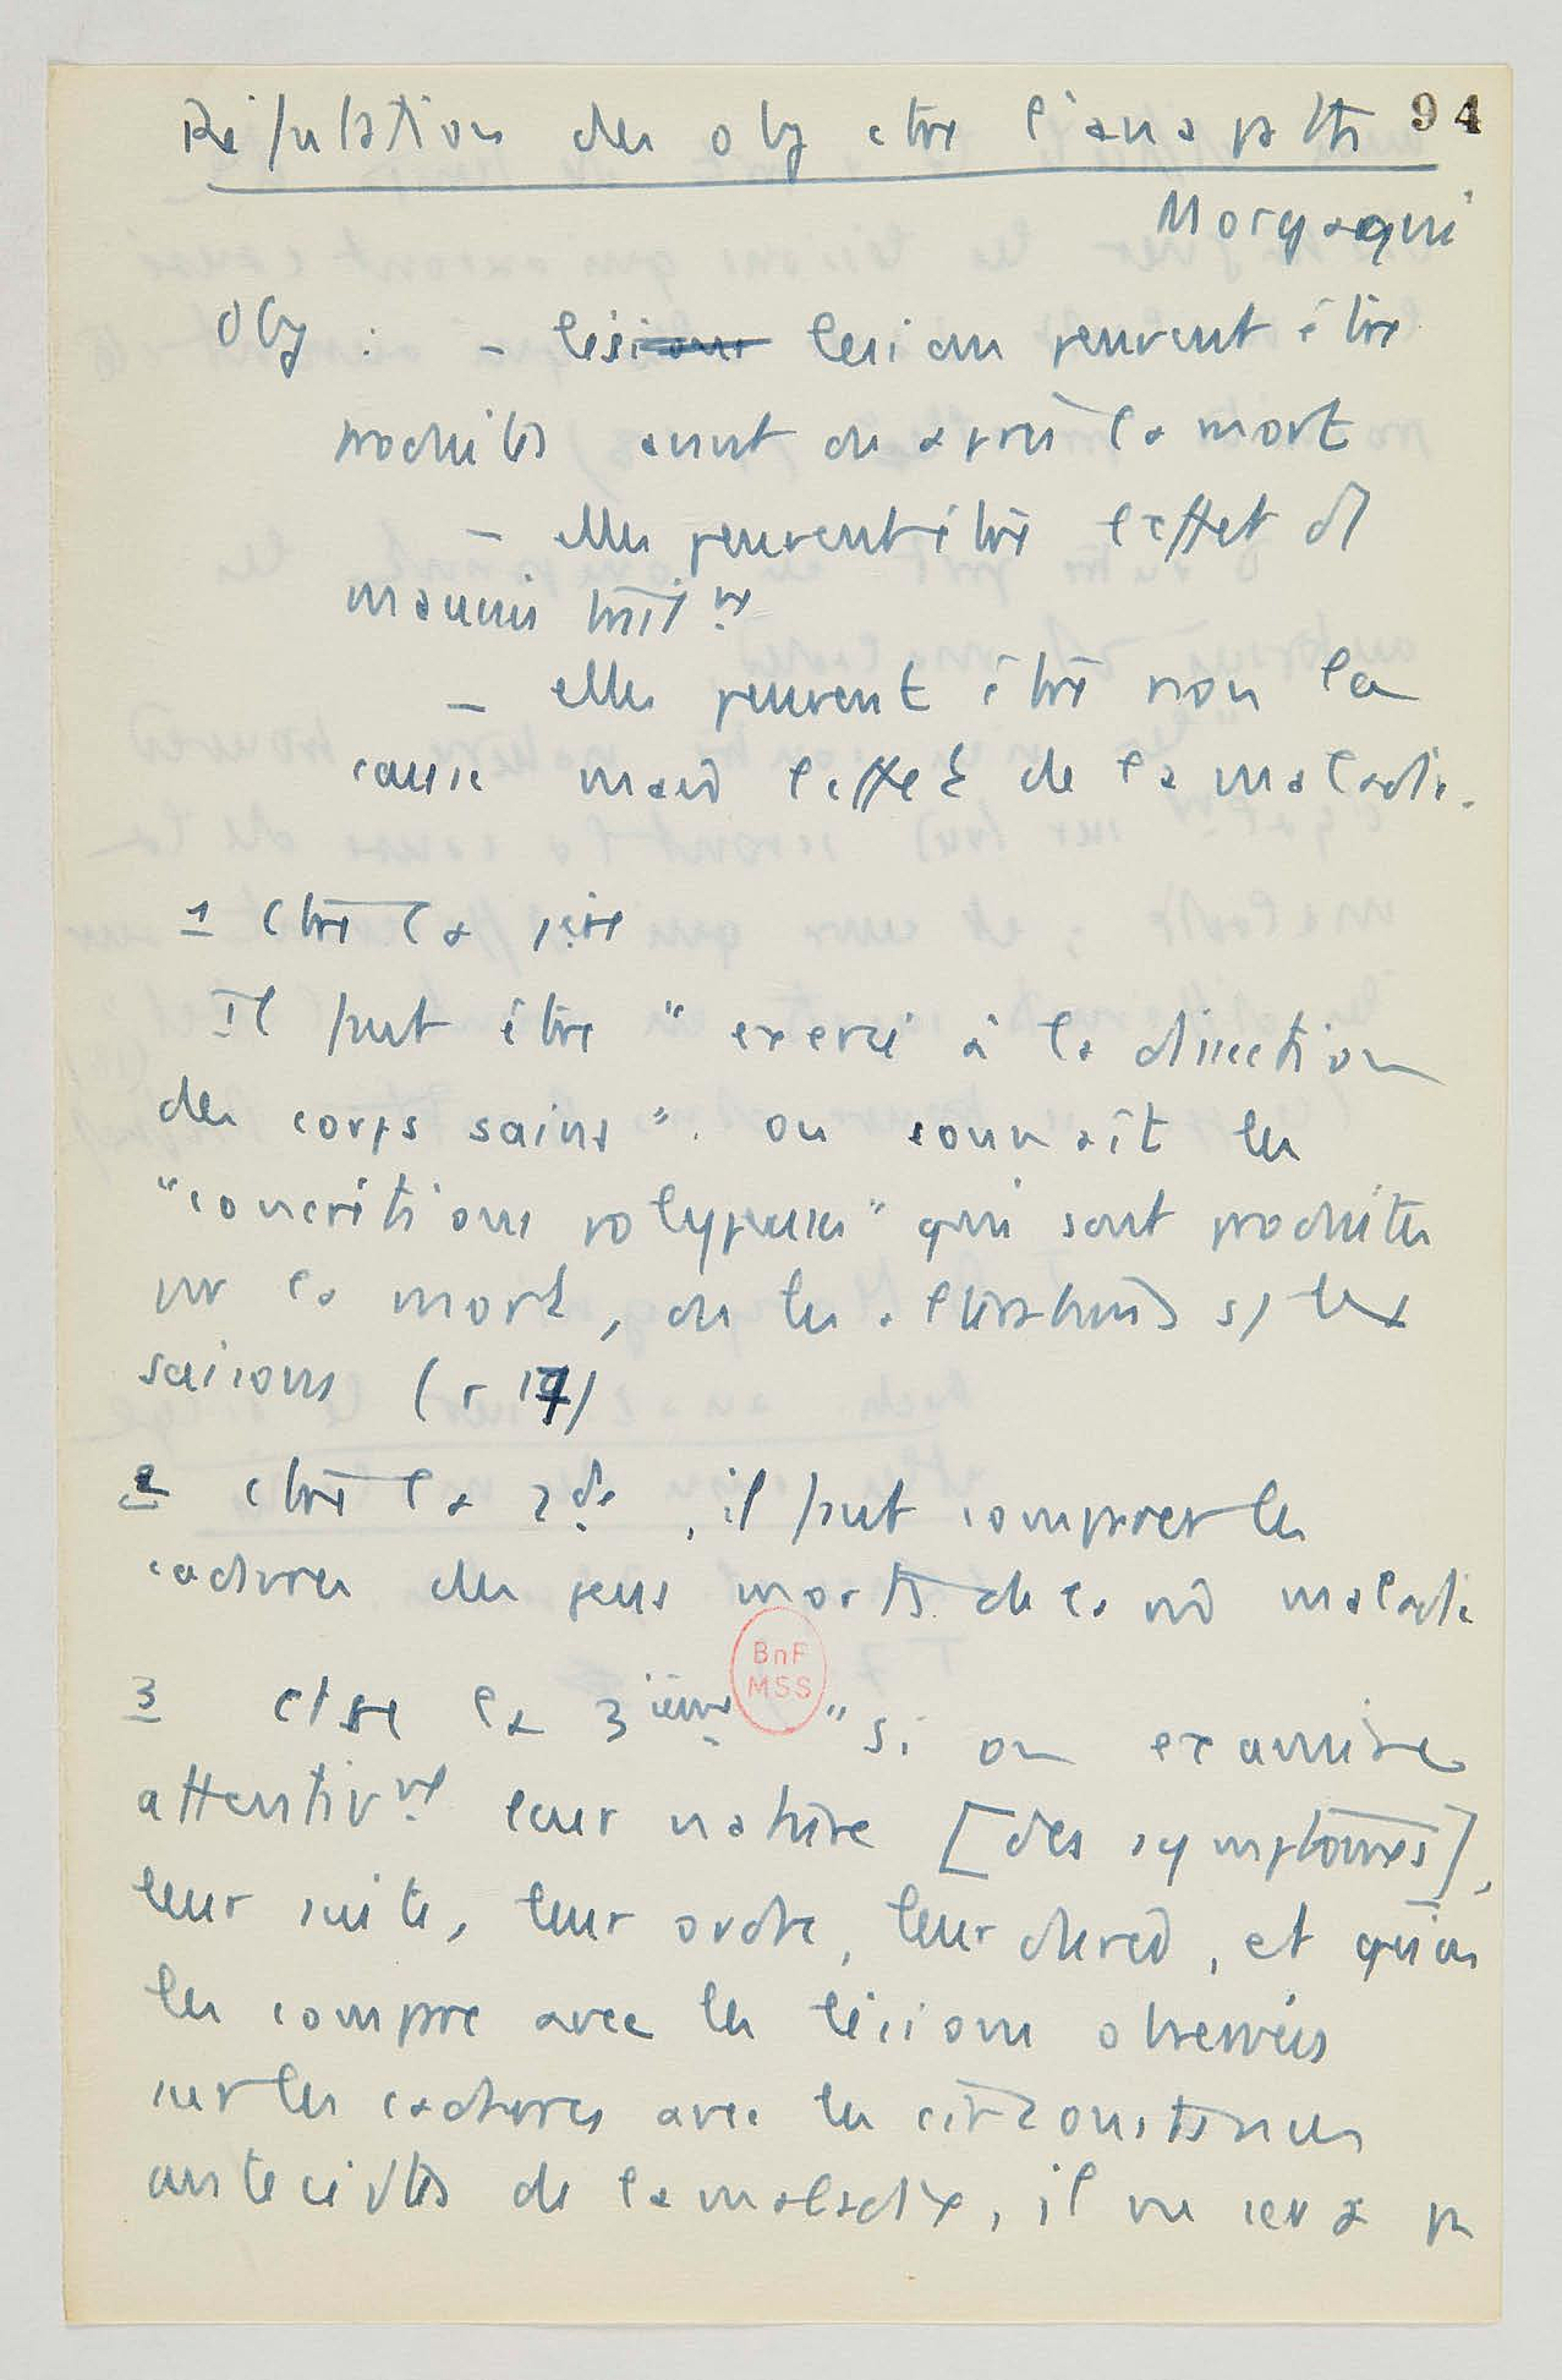 Réfutation des obj ctre l'ana path 94
Morgagni
Obj : - lésions lesions peuvent être
produites avant ou après la mort
- elles peuvent être l'effet d
mauvais trait nt
- elles peuvent être non la
cause mais l'effet de la maladie.
1 Ctre la 1ère
Il faut être "exercé à la dissection
des corps sains". on connaît les
"concrétions polypeuses" qui sont produites
par la mort, ou les altérations s/ les
saisons (p 17)
2 ctre la 2de, il faut comparer les
cadavres des gens morts de la m maladie
3 ctre la 3ième "si on examine
attentivt leur nature [des symptômes],
leur suite, leur ordre, leur durée, et qu'on
les compare avec les lésions observées
sur les cadavres avec les circonstances
antecédtes de la maladie, il ne sera p
BnF
MSS